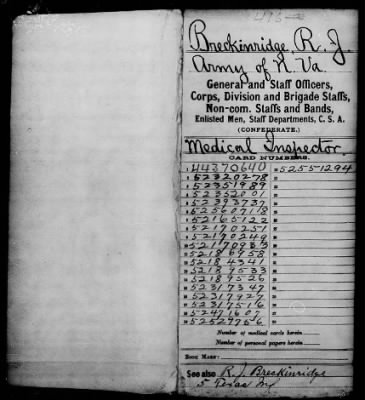 Breckinridge, R. J.
Army of N. Va.
General and Staff Officers,
Corps, Division and Brigade Staffs,
Non-com. Staffs and Bands,
Enlisted Men, Staff Departments, C. S. A.
(CONFEDERATE.)
Medical Inspector.
CARD NUMBERS.
44370640 52551294
52320278
52351989
52352001
52393737
52560718
52165122
52170251
52170249
52170933
52184341
52189533
52189526
52317347
52317927
52317516
52471607
52529756
Number of medical cards herein
Number of personal papers herein
BOOK MARK:
See also R. J. Breckinridge
5 Texas Inf